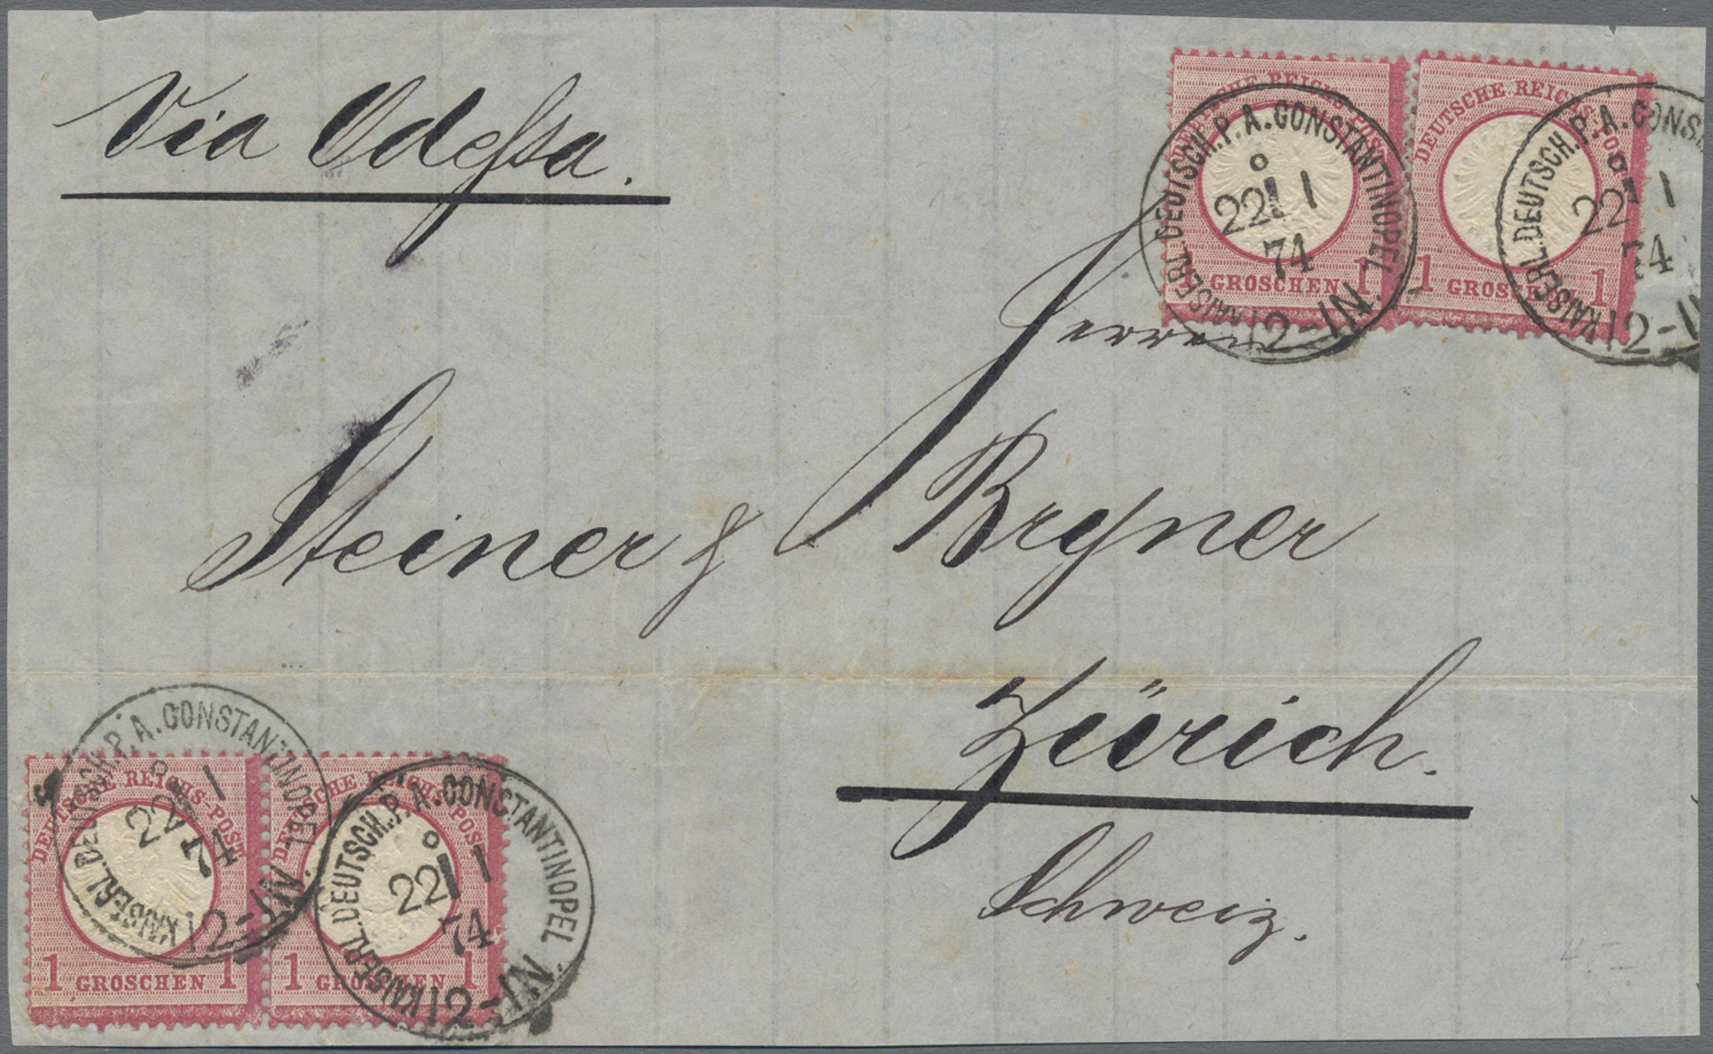 Via Odessa.
DEUTSCHE REICHS-POST
1 GROSCHEN 1
DEUTSCHE REICHS-POST
1 GROSCHEN 1
KAISERL. DEUTSCH. P. A. CONSTANTINOPEL.
22 1
74
12-1N
KAISERL. DEUTSCH. P. A. CONS
22 1
74
12-1
Herren
Steiner & Bryner
Zürich.
Schweiz.
DEUTSCHE REICHS-POST
1 GROSCHEN 1
DEUTSCHE REICHS-POST
1 GROSCHEN 1
KAISERL. DEUTSCH. P. A. CONSTANTINOPEL.
22 1
74
12-1N
KAISERL. DEUTSCH. P. A. CONSTANTINOPEL.
22 1
74
12-1N